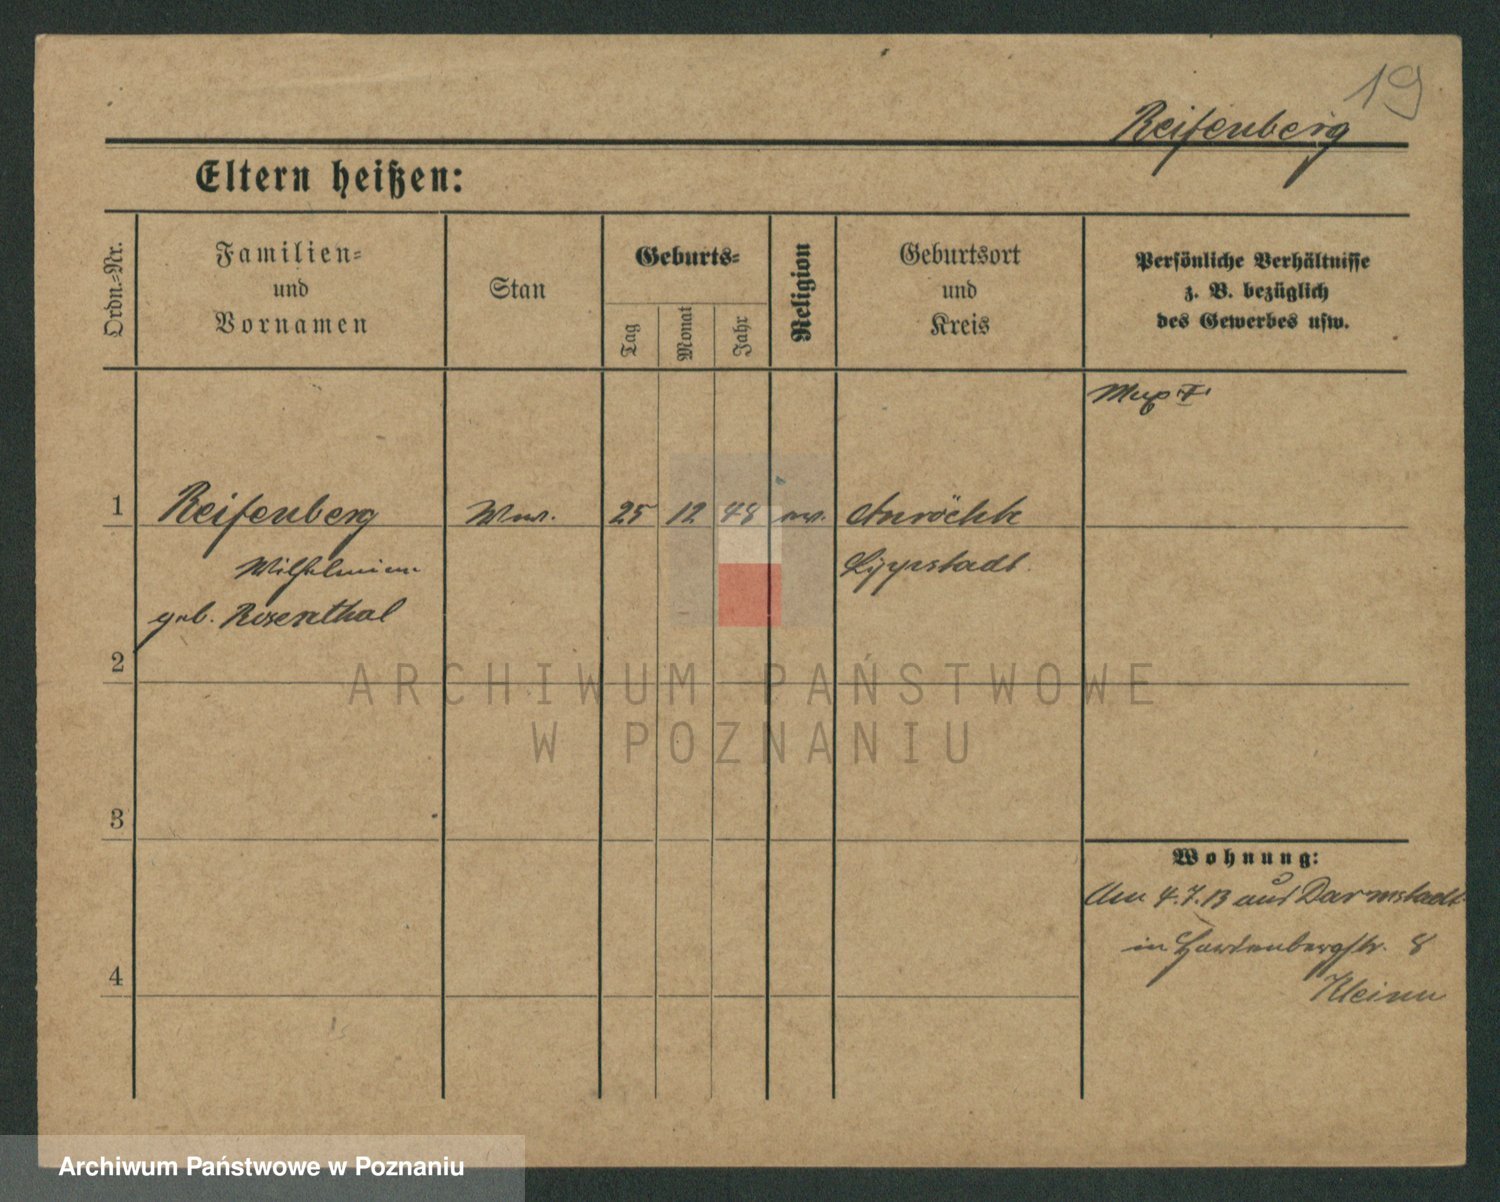 19
Reifenberg
Eltern heißen:
Ordn.-Nr.
Familien-
und
Vornamen
Stan
Geburts-
Tag
Monat
Jahr
Religion
Geburtsort
und
Kreis
Persönliche Verhältnisse
z. B. bezüglich
des Gewerbes usw.
1 Reifenberg Ww. 25 12 48 Anröchte
Wilhelmine Lippstadt.
geb. Rosenthal
2
3
4
Wohnung:
Am 4.7.13 aus Darmstadt
in Hardenbergstr. 8
ARCHIWUM PAŃSTWOWE
W POZNANIU
Archiwum Państwowe w Poznaniu